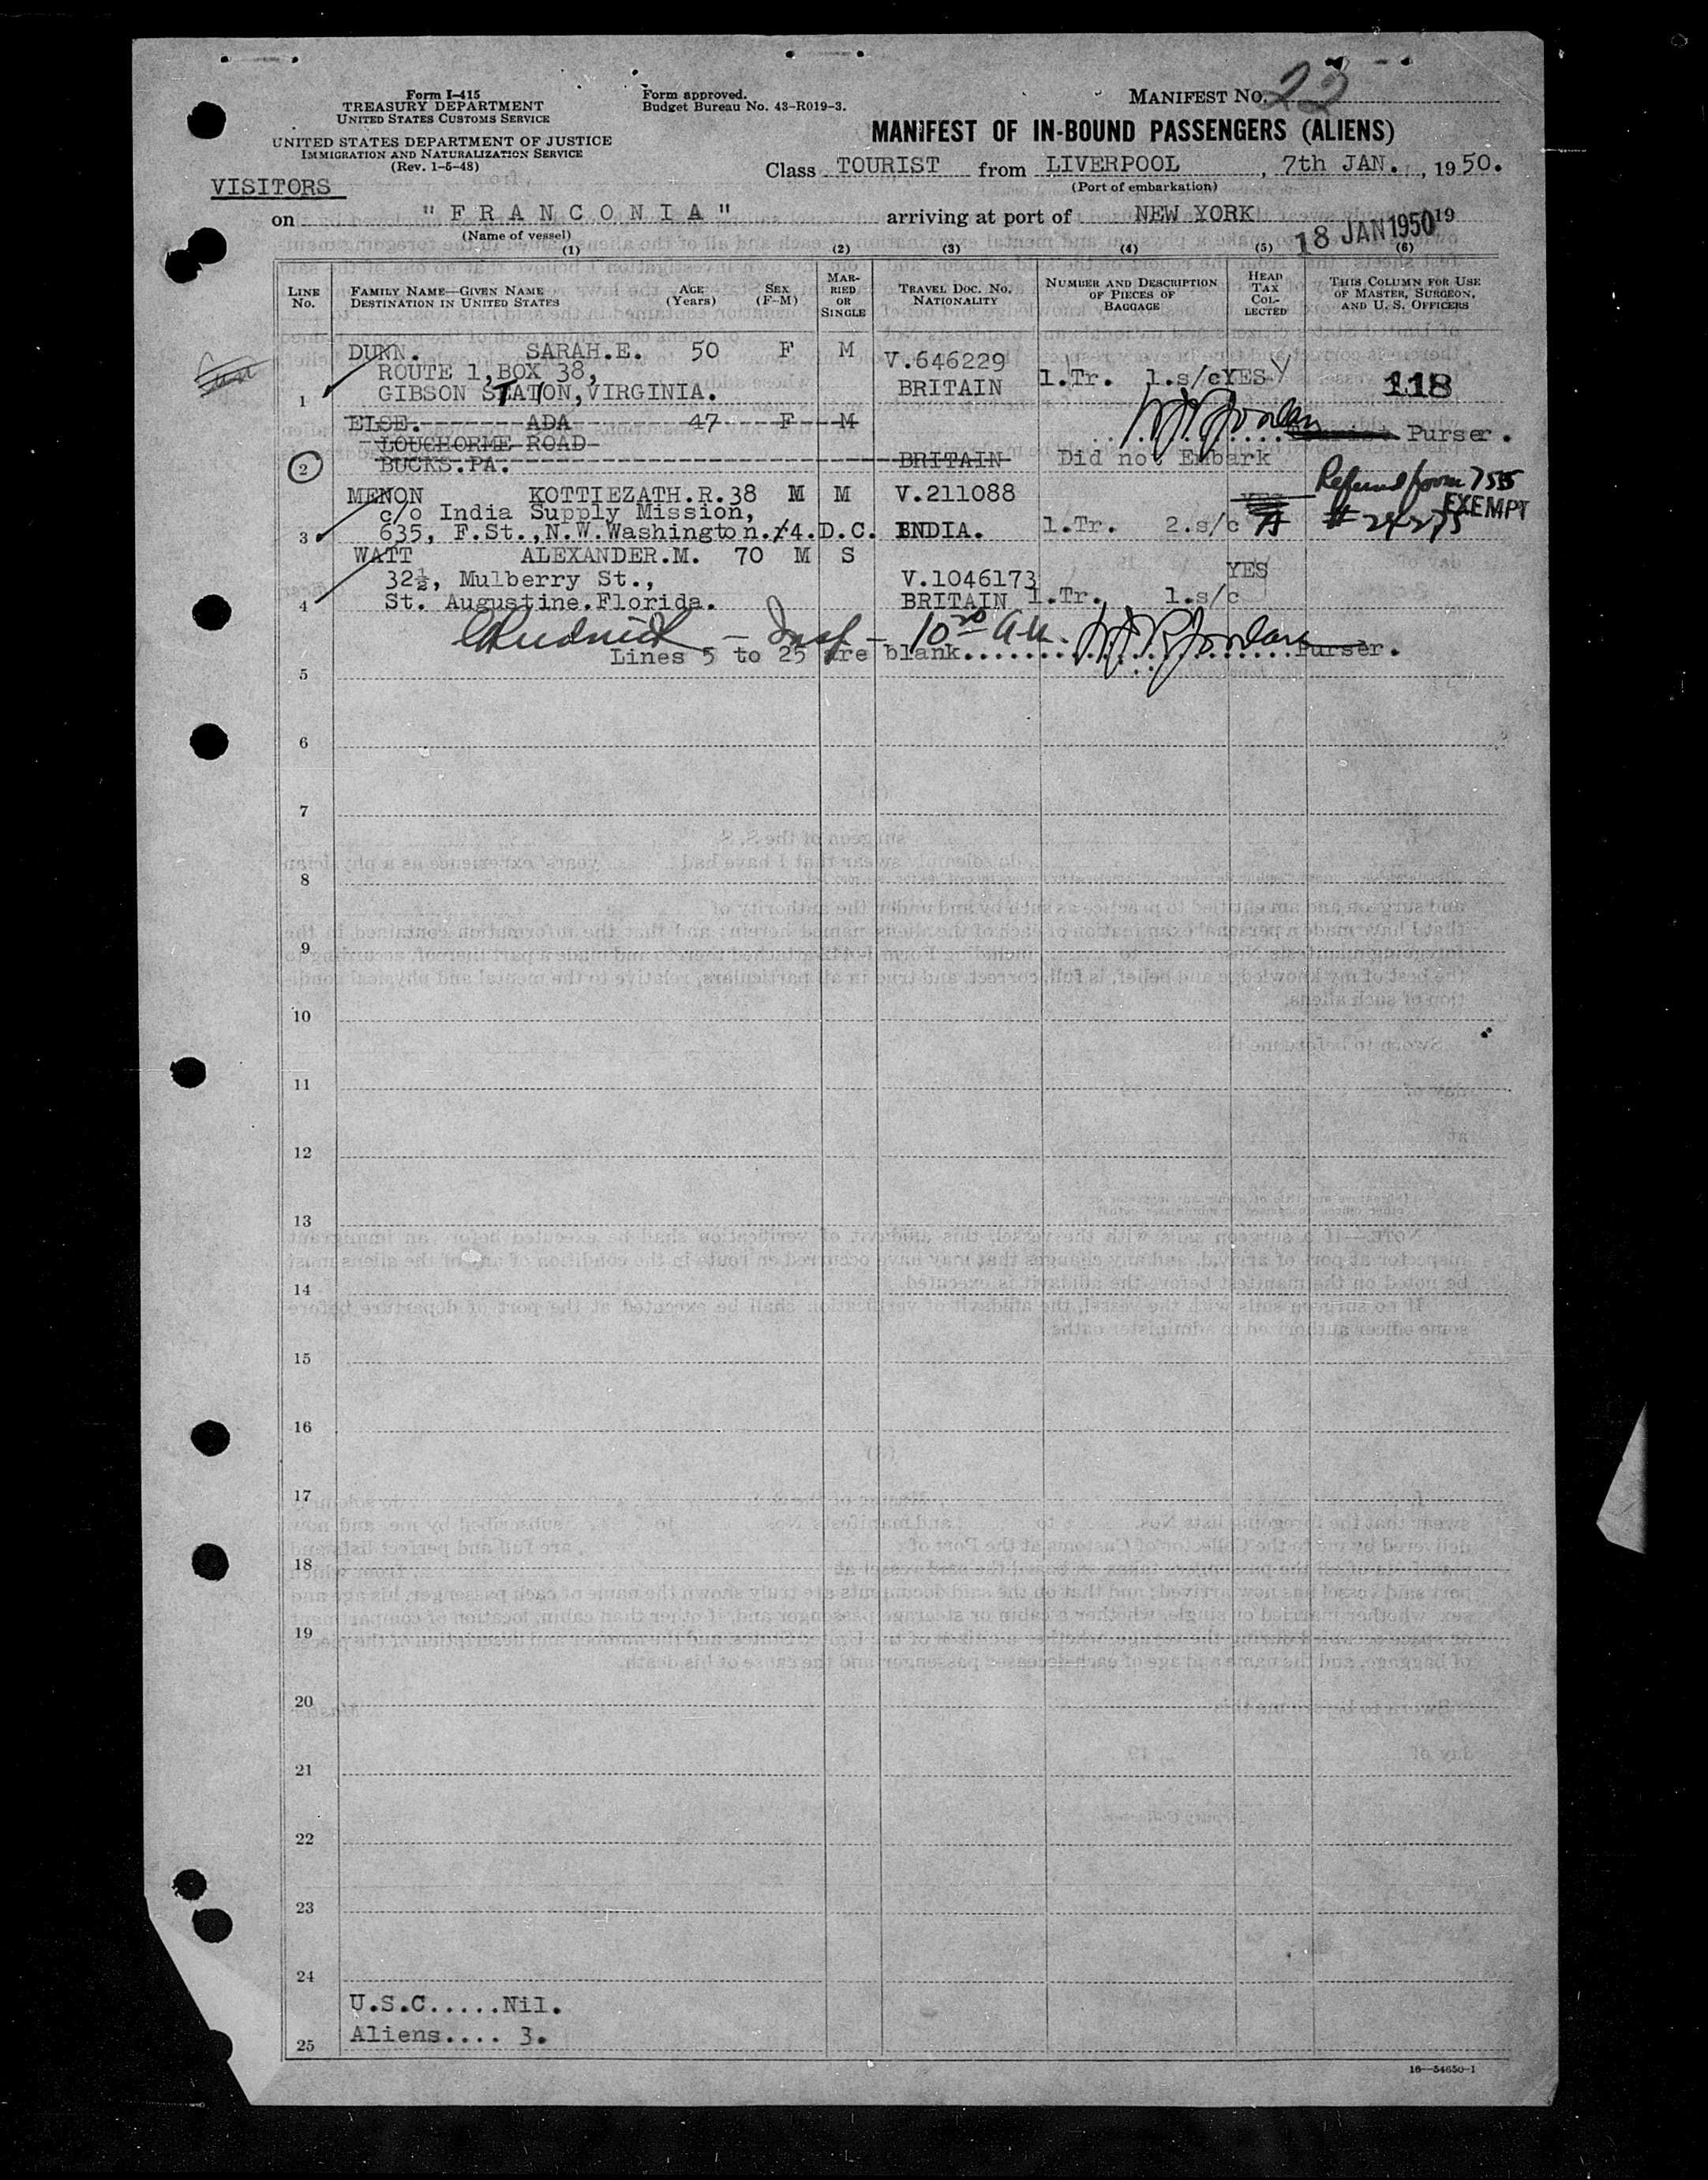 Form I-415
TREASURY DEPARTMENT
UNITED STATES CUSTOMS SERVICE
UNITED STATES DEPARTMENT OF JUSTICE
IMMIGRATION AND NATURALIZATION SERVICE
(Rev. 1-5-48)
Form approved.
Budget Bureau No. 43-R019-3.
MANIFEST No. 23
MANIFEST OF IN-BOUND PASSENGERS (ALIENS)
VISITORS
Class TOURIST from LIVERPOOL, 7th JAN., 1950.
(Port of embarkation)
on "FRANCONIA" arriving at port of NEW YORK 18 JAN 1950 19
(Name of vessel)
(1) (2) (3) (4) (5) (6)
LINE No. FAMILY NAME—GIVEN NAME DESTINATION IN UNITED STATES AGE (Years) SEX (F-M) MARRIED OR SINGLE TRAVEL DOC. NO. NATIONALITY NUMBER AND DESCRIPTION OF PIECES OF BAGGAGE HEAD TAX COLLECTED THIS COLUMN FOR USE OF MASTER, SURGEON, AND U. S. OFFICERS
DUNN. SARAH.E. 50 F M V.646229
ROUTE 1,BOX 38,
1 GIBSON STATION,VIRGINIA. BRITAIN 1.Tr. 1.s/c YES 118
ELSE. ADA 47 F M
LOUCHORME ROAD Purser.
2 BUCKS.PA. BRITAIN Did not Embark
MENON KOTTIEZATH.R. 38 M M V.211088 YES EXEMPT
c/o India Supply Mission,
3 635, F.St.,N.W.Washington.4.D.C. INDIA. 1.Tr. 2.s/c
WATT ALEXANDER.M. 70 M S
32½, Mulberry St., V.1046173 YES
4 St. Augustine.Florida. BRITAIN 1.Tr. 1.s/c
Insp - 10 30 A.M.
Lines 5 to 25 are blank. Purser.
5
6
7
8
9
10
11
12
13
14
15
16
17
18
19
20
21
22
23
24
U.S.C.....Nil.
25 Aliens.... 3.
16—54650-1